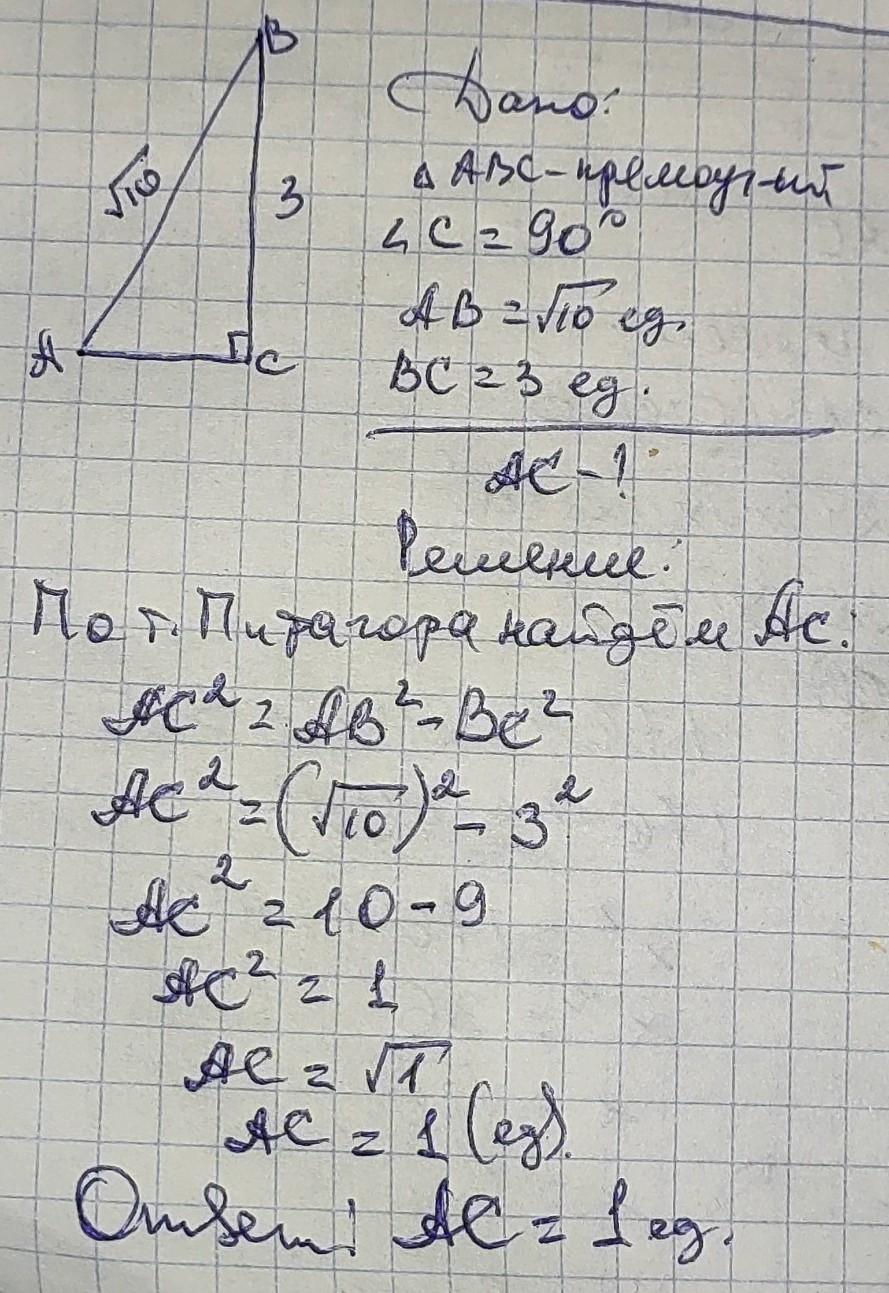 B
√10
3
A
C
Дано:
△ ABC - прямоуг-ый
∠ C = 90°
AB = √10 ед.
BC = 3 ед.
AC - ?
Решение:
По т. Питагора найдём AC:
AC² = AB² - BC²
AC² = (√10)² - 3²
AC² = 10 - 9
AC² = 1
AC = √1
AC = 1 (ед).
Ответ: AC = 1 ед.